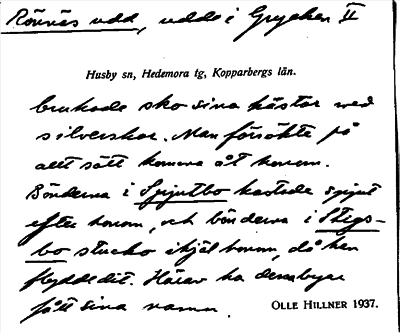 Rönnäs udd, udde i Grycken II
Husby sn, Hedemora tg, Kopparbergs län.
brukade sko sina hästar med
silverskor. Man försökte på
allt sätt komma åt honom.
Bönderna i Spjutbo kastade spjut
efter honom, och bönderna i Stigs-
bo stucko ihjäl honom, då han
flydde dit. Härav ha dessa byar
fått sina namn.
OLLE HILLNER 1937.